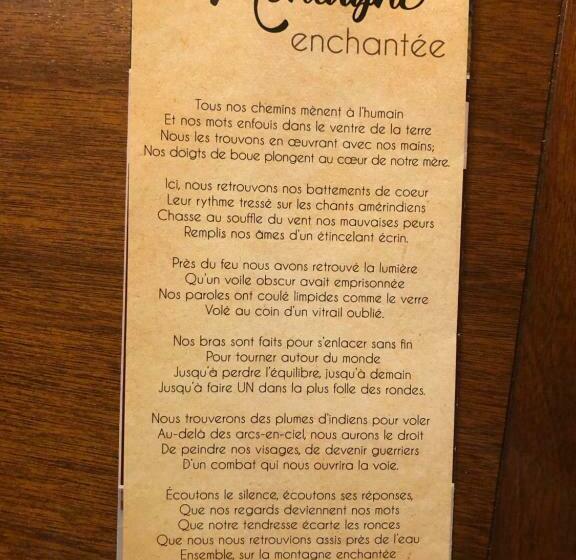 Montagne
enchantée
Tous nos chemins mènent à l'humain
Et nos mots enfouis dans le ventre de la terre
Nous les trouvons en œuvrant avec nos mains;
Nos doigts de boue plongent au cœur de notre mère.
Ici, nous retrouvons nos battements de coeur
Leur rythme tressé sur les chants amérindiens
Chasse au souffle du vent nos mauvaises peurs
Remplis nos âmes d'un étincelant écrin.
Près du feu nous avons retrouvé la lumière
Qu'un voile obscur avait emprisonnée
Nos paroles ont coulé limpides comme le verre
Volé au coin d'un vitrail oublié.
Nos bras sont faits pour s'enlacer sans fin
Pour tourner autour du monde
Jusqu'à perdre l'équilibre, jusqu'à demain
Jusqu'à faire UN dans la plus folle des rondes.
Nous trouverons des plumes d'indiens pour voler
Au-delà des arcs-en-ciel, nous aurons le droit
De peindre nos visages, de devenir guerriers
D'un combat qui nous ouvrira la voie.
Écoutons le silence, écoutons ses réponses,
Que nos regards deviennent nos mots
Que notre tendresse écarte les ronces
Que nous nous retrouvions assis près de l'eau
Ensemble, sur la montagne enchantée